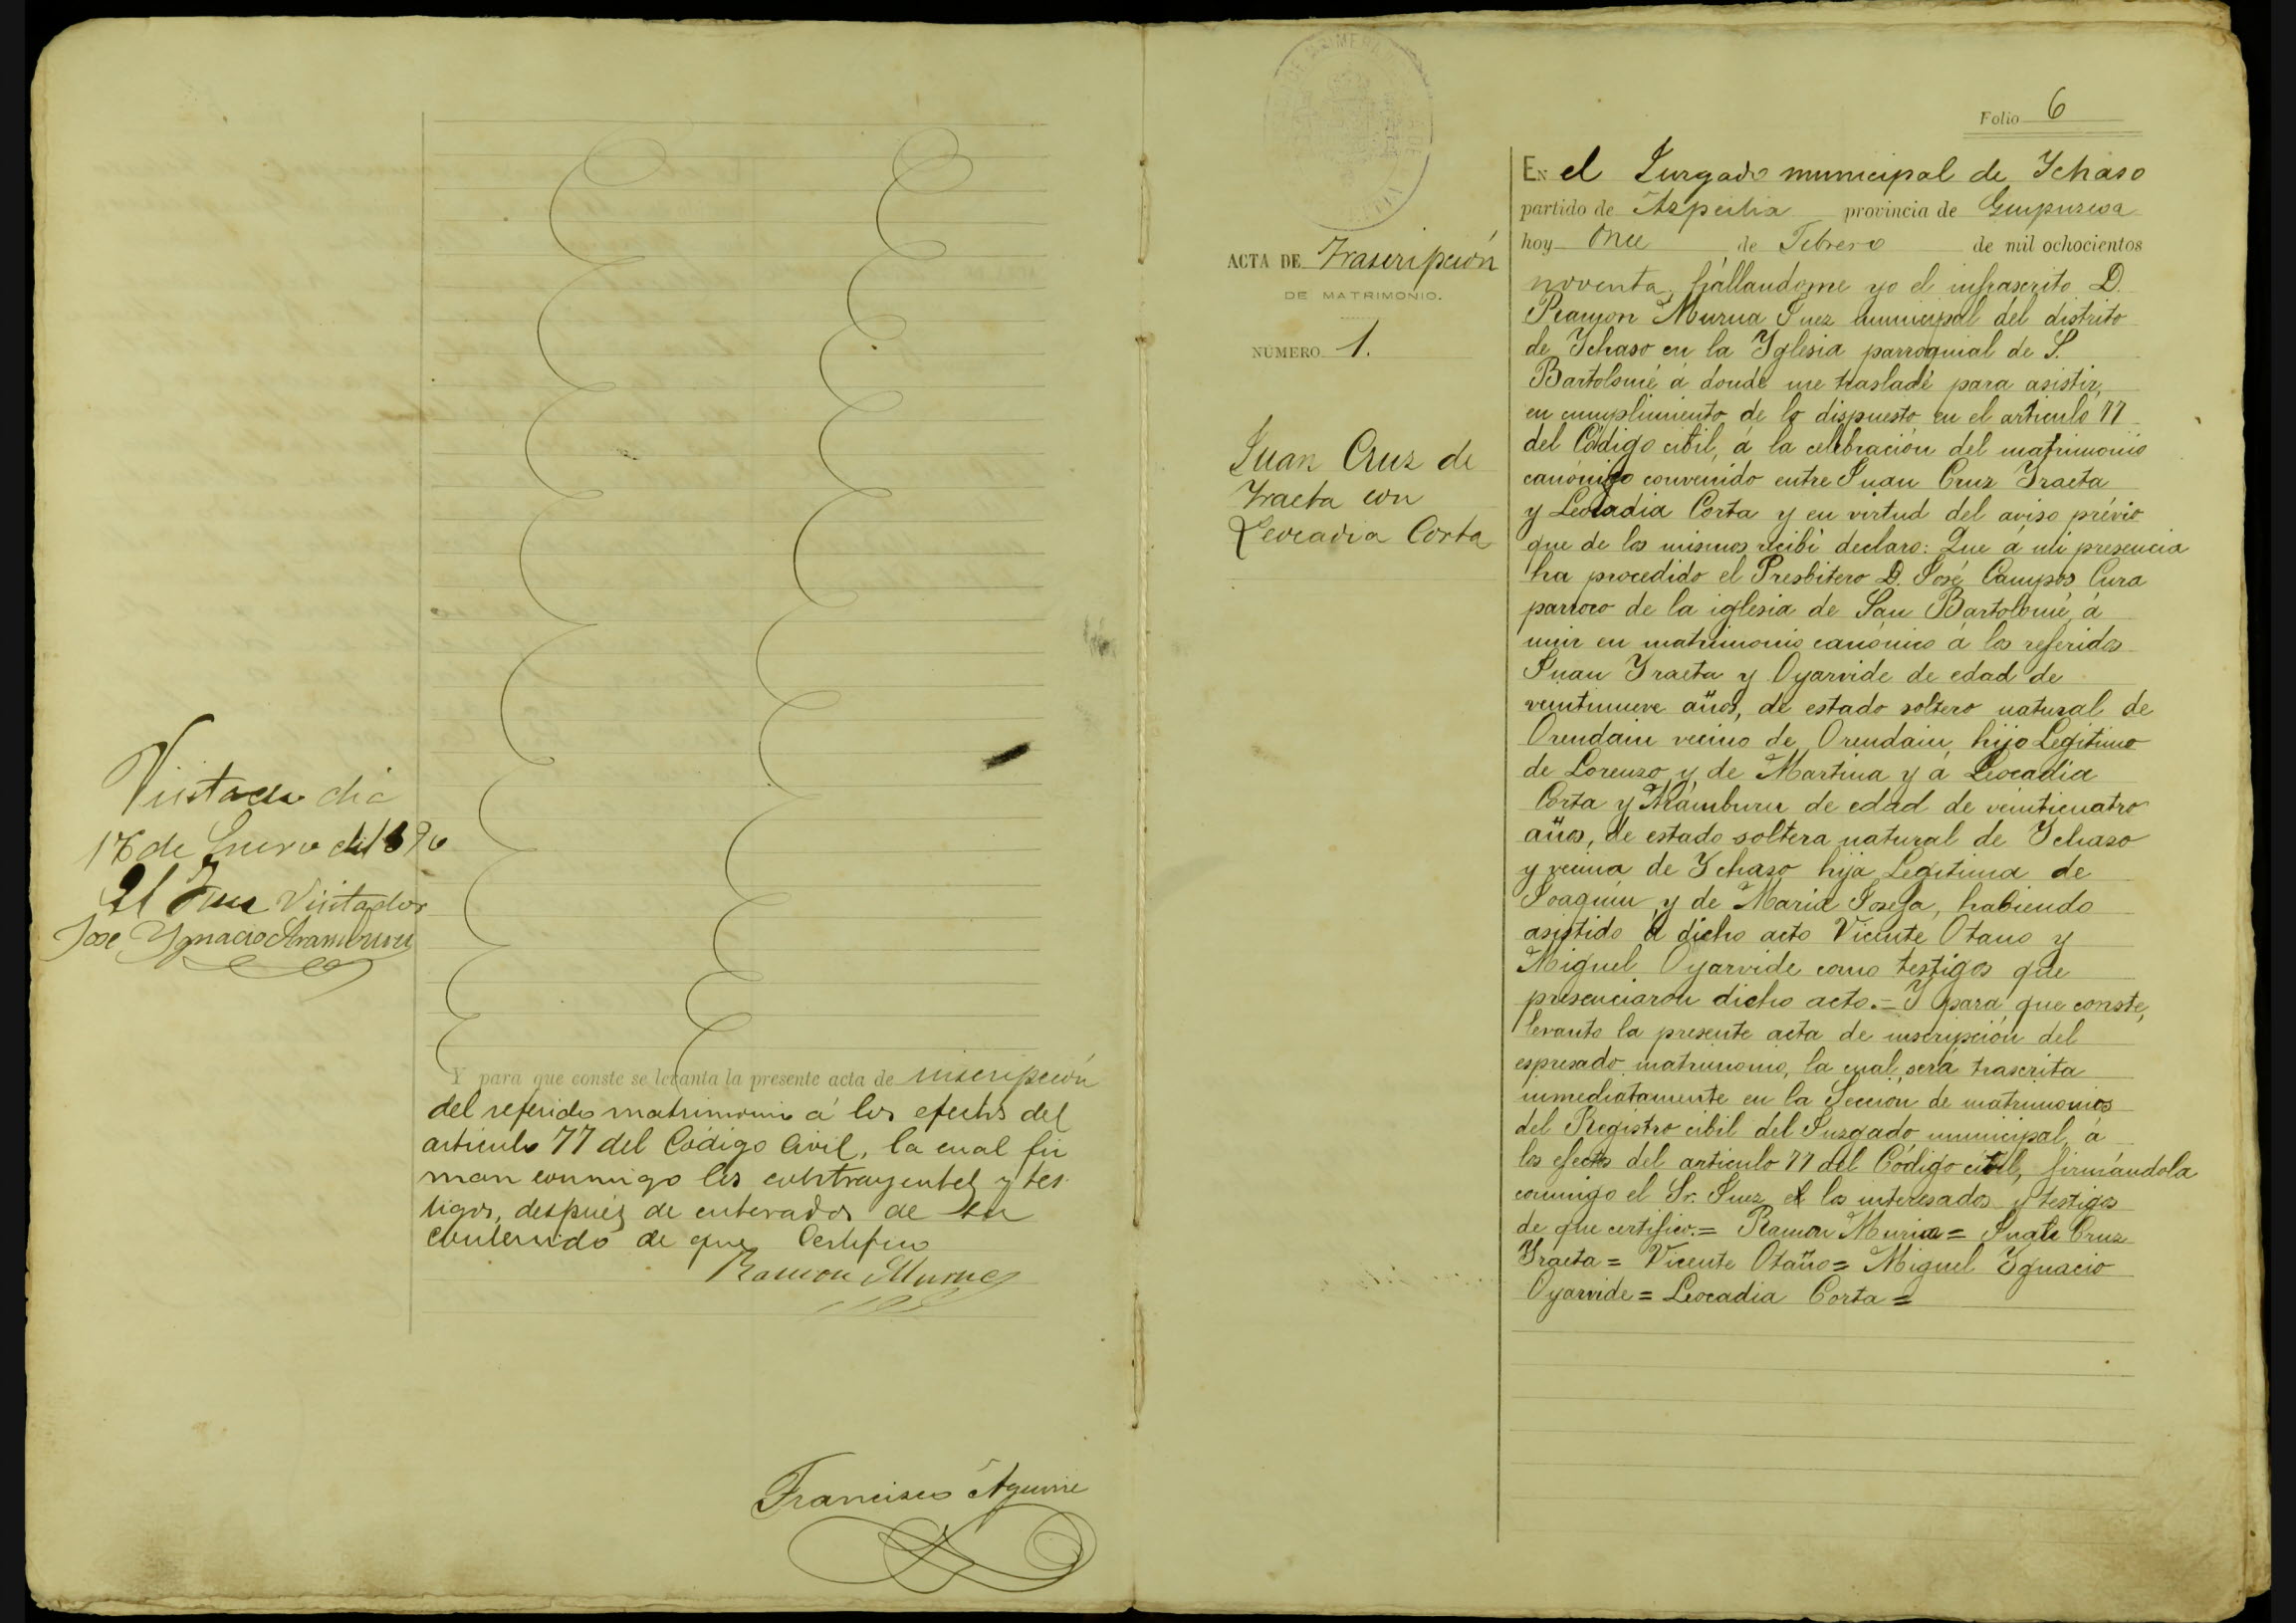 Visitada dia
17 de Enero de 1890
El Juez Visitador
Jose Ygnacio Aramburu
Y para que conste se levanta la presente acta de inscripción
del referido matrimonio á los efectos del
articulo 77 del Código Civil, la cual fir
man conmigo los contrayentes y tes
tigos, después de enterados de su
contenido de que Certifico
Ramon Murua
Francisco Aguirre
ACTA DE Trascripción
DE MATRIMONIO.
NÚMERO 1.
Juan Cruz de
Yraeta con
Leocadia Corta
Folio 6
EN el Jurgado municipal de Ychaso
partido de Azpeitia provincia de Guipuzcoa
hoy Once de Febrero de mil ochocientos
noventa, hállandome yo el infrascrito D.
Ramon Murua Juez municipal del distrito
de Ychaso en la Yglesia parroquial de S.
Bartolomé á donde me trasladé para asistir,
en cumplimiento de lo dispuesto en el articulo 77
del Código cibil, á la celebración del matrimonio
canónigo convenido entre Juan Cruz Yraeta
y Leocadia Corta y en virtud del aviso prévio
que de los mismos recibí declaro: Que á mi presencia
ha procedido el Presbitero D. José Campos Cura
parroco de la iglesia de San Bartolomé, á
unir en matrimonio canónico á los referidos
Juan Yraeta y Oyarvide de edad de
veintinueve años, de estado soltero natural de
Orendain vecino de Orendain, hijo Legítimo
de Lorenzo y de Martina y á Leocadia
Corta y Arámburu de edad de veinticuatro
años, de estado soltera natural de Ychaso
y vecina de Ychaso hija Legitima de
Joaquin y de Maria Josefa, habiendo
asistido á dicho acto Vicente Otano y
Miguel Oyarvide como testigos que
presenciaron dicho acto.= Y para que conste,
levanto la presente acta de inscripción del
espresado matrimonio, la cual, será trascrita
inmediatamente en la Sección de matrimonios
del Registro cibil del Juzgado municipal, á
los efectos del articulo 77 del Código cibil, firmándola
conmigo el Sr. Juez, los interesados y testigos
de que certifico.= Ramon Murua= Juan Cruz
Yraeta= Vicente Otaño= Miguel Ygnacio
Oyarvide= Leocadia Corta=